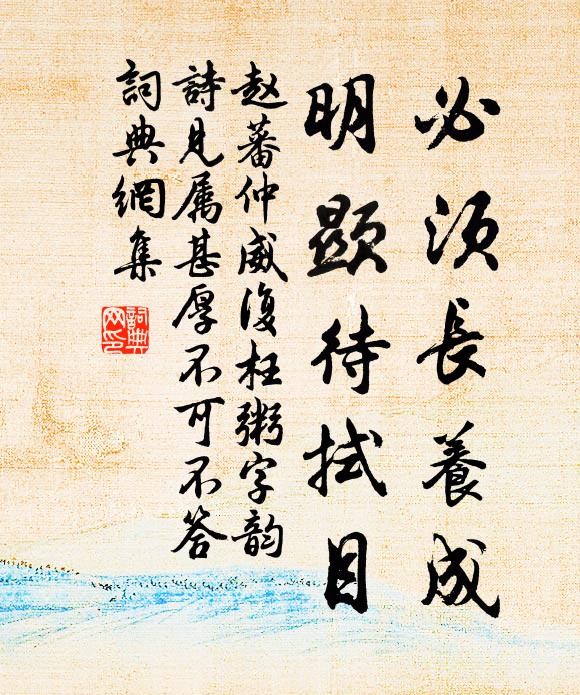 必須長養成
明顯待拭目
赵蕃仲威復枉粥字韵
詩見属甚厚不可不答
詞典網集
詞典网印